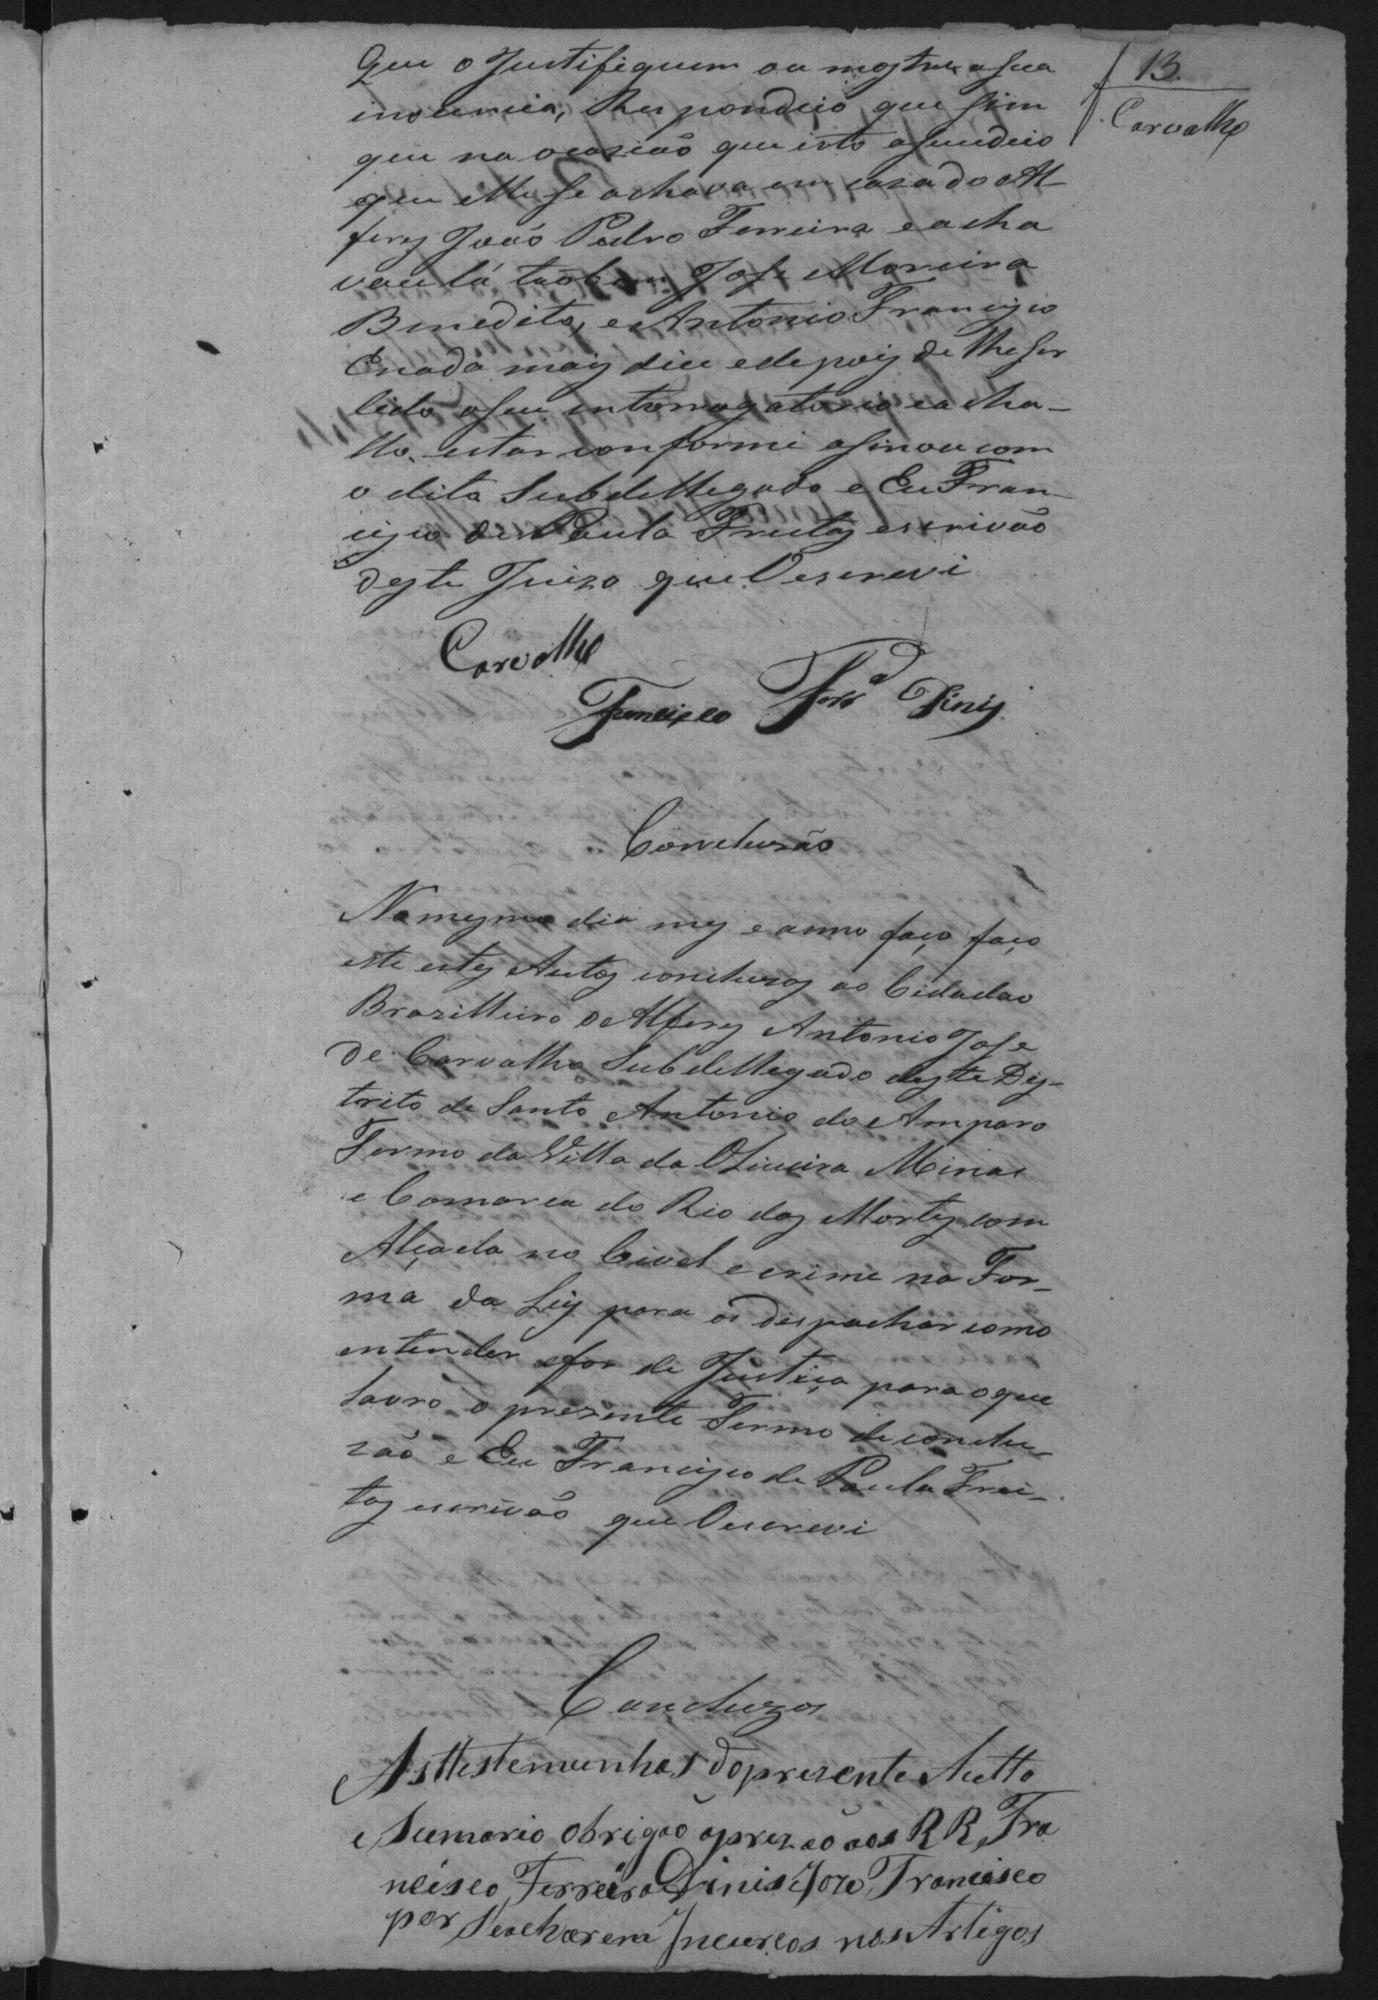 f 13.
Carvalho
Que o Justifiquem ou mostre a sua
inosencia, Respondeio que sim
que na ocazião que isto asucedeio
que elle se achava em caza do Al-
ferez João Pedro Ferreira e acha
vace lá tãobem Jose Moreira
Benedito, e Antonio Francisco
Enada mais dice e depois de lhe ser
lido o seu interrogatorio e acha-
llo estar conforme asinou com
o dito Subdellegado e Eu Fran-
cisco de Paula Freitas escrivão
deste Juizo que Oescrevi
Carvalho
Francisco Ferr.ª Dinis
Concluzão
No mesmo dia mes e anno faço faço
este estes Autos concluzos ao Cidadão
Brazilleiro o Alferes Antonio Jose
de Carvalho Subdellegado deste Dis-
trito de Santo Antonio do Amparo
Termo da Villa da Oliveira Minas
e Comarca do Rio das Mortes com
Alçada no Civel e crime na For-
ma da Ley para os despachar como
entender e for de Justiça para o que
lavro o prezente Termo de conclu-
zão e Eu Francisco de Paula Frei-
tas escrivão que Oescrevi
Concluzos
As ttestemunhas do prezente Autto
e Sumario obrigão a prizão aos RR. Fra
ncisco Ferreira Dinis e Joze Francisco
por se acharem Incurços nos Artigos